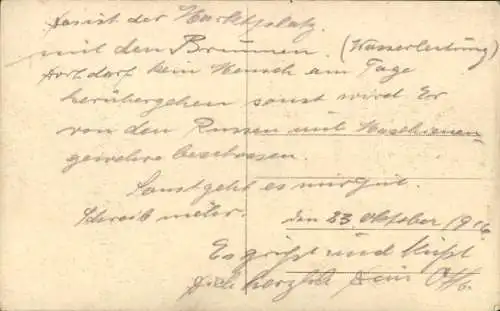 Das ist der Marktplatz
mit den Brunnen. (Wasserleitung)
dort darf kein Mensch am Tage
herübergehen sonst wird Er
von den Russen mit Maschienen-
gewehre beschossen.
Sonst geht es mir gut.
Schreib mehr.
den 23. Oktober 1916
Es grüßt und küßt
Dich herzlich Dein Otto.